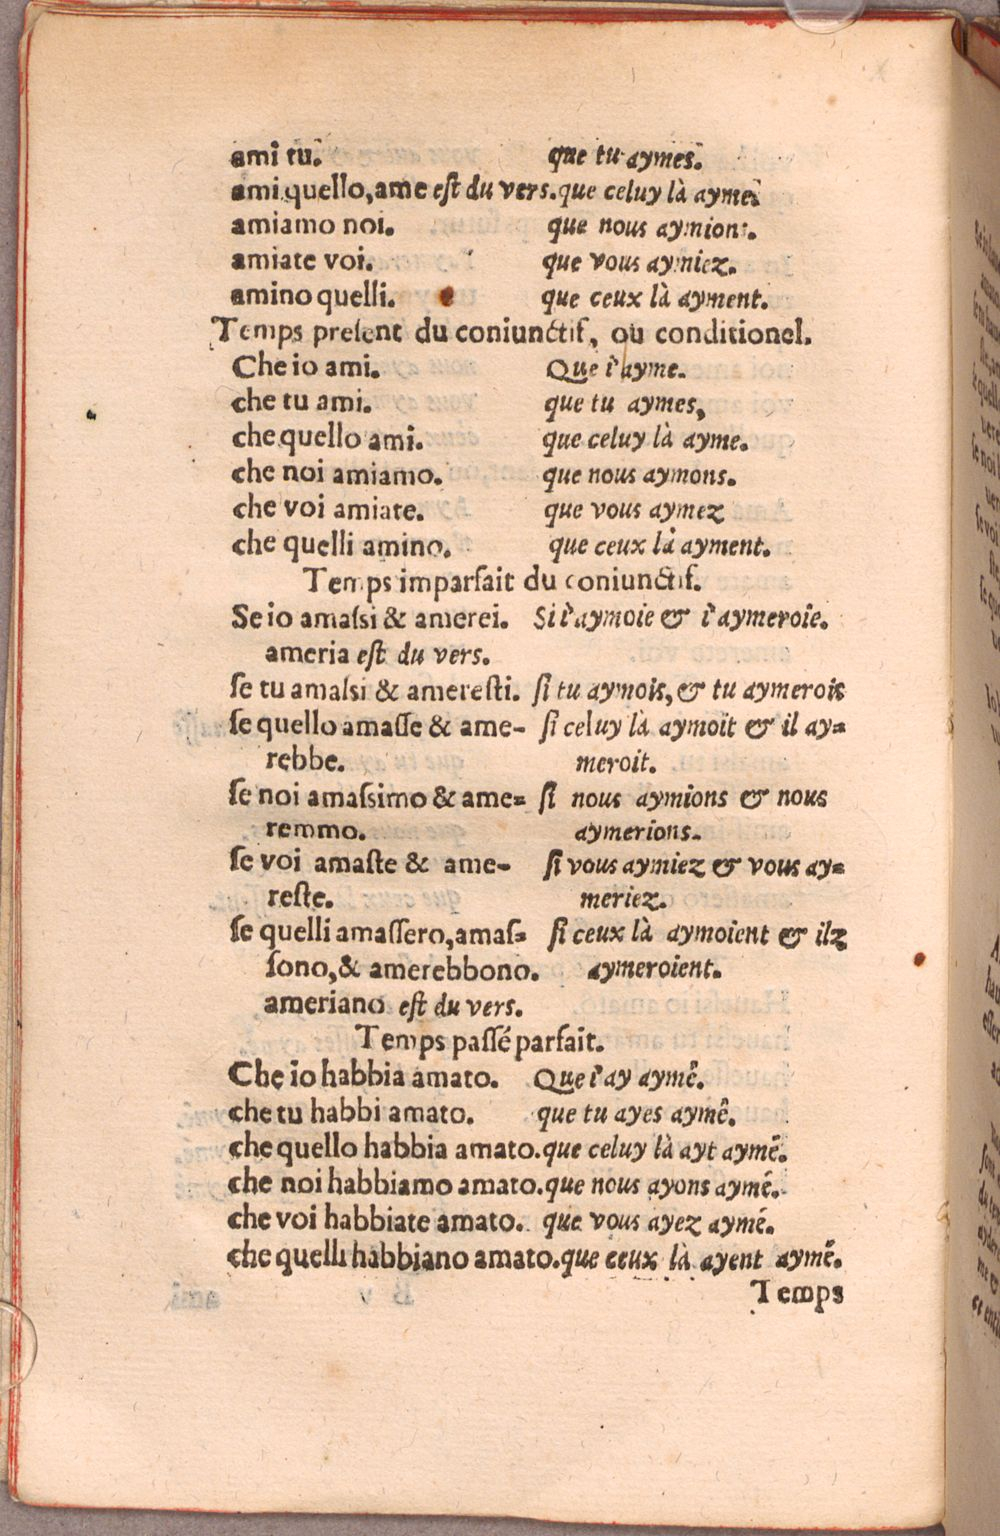 ami tu. que tu aymes.
ami quello, ame est du vers. que celuy là ayme.
amiamo noi. que nous aymions.
amiate voi. que vous aymiez.
amino quelli. que ceux là ayment.
Temps preſent du coniunctif, ou conditionel.
Che io ami. Que i'ayme.
che tu ami. que tu aymes,
che quello ami. que celuy là ayme.
che noi amiamo. que nous aymons.
che voi amiate. que vous aymez
che quelli amino. que ceux là ayment.
Temps imparfait du coniunctif.
Se io amaſsi & amerei. Si i'aymoie & i'aymeroie.
ameria eſt du vers.
ſe tu amaſsi & amereſti. ſi tu aymois, & tu aymerois
ſe quello amaſſe & ame- ſi celuy là aymoit & il ay-
rebbe. meroit.
ſe noi amaſsimo & ame- ſi nous aymions & nous
remmo. aymerions.
ſe voi amaſte & ame- ſi vous aymiez & vous ay-
reſte. meriez.
ſe quelli amaſſero, amaſ- ſi ceux là aymoient & ilz
ſono, & amerebbono. aymeroient.
ameriano eſt du vers.
Temps paſſé parfait.
Che io habbia amato. Que i'ay aymé.
che tu habbi amato. que tu ayes aymé.
che quello habbia amato. que celuy là ayt aymé.
che noi habbiamo amato. que nous ayons aymé.
che voi habbiate amato. que vous ayez aymé.
che quelli habbiano amato. que ceux là ayent aymé.
Temps